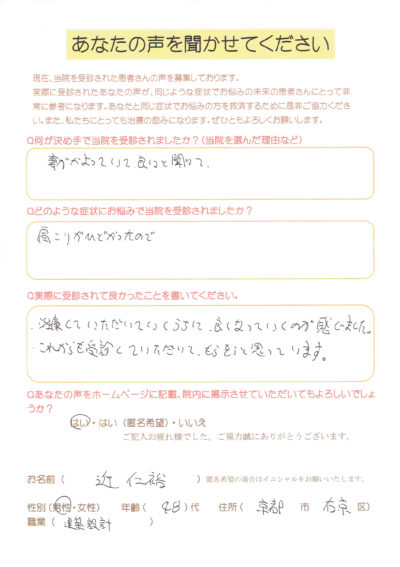 あなたの声を聞かせてください
現在、当院を受診された患者さんの声を募集しております。
実際に受診されたあなたの声が、同じような症状でお悩みの未来の患者さんにとって非
常に参考になります。あなたと同じ症状でお悩みの方を救済するために是非ご協力くださ
い。また、私たちにとっても治療の励みになります。ぜひともよろしくお願いします。
Q何が決め手で当院を受診されましたか？(当院を選んだ理由など)
妻がかよっていて良いと聞いて、
Qどのような症状にお悩みで当院を受診されましたか？
肩こりがひどかったので
Q実際に受診されて良かったことを書いてください。
・治療していただいていくうちに、良くなっていくのが感じました。
・これからも受診していただいて、もらおうと思っています。
Qあなたの声をホームページに記載、院内に掲示させていただいてもよろしいでしょ
うか？
はい・はい（匿名希望）・いいえ
ご記入お疲れ様でした。ご協力誠にありがとうございます。
お名前（ 辻 仁裕 ）匿名希望の場合はイニシャルをお願いいたします。
性別(男性・女性) 年齢（ 48 ）代 住所（ 京都 市 右京 区）
職業（ 建築設計 ）